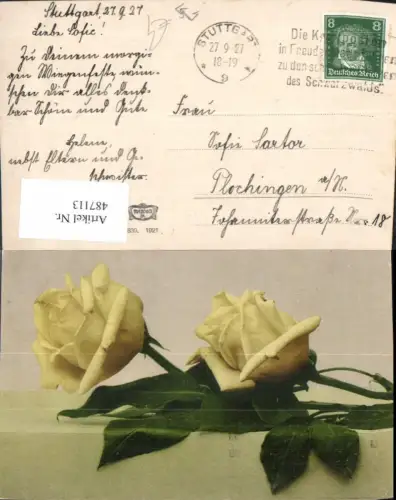 Stuttgart, 27.9.27
Liebe Sofie!
Zu Deinem morgi-
gen Wiegenfeste wün-
schen dir alles denk-
bar Schöne und Gute
Helene,
nebst Eltern und Ge-
schwister.
STUTTGART
27 9 27
18-19
9
Die K
in Freud
zu den sch
des Schwarzwalds.
8 8
Deutsches Reich
Frau
Sofie Sartor
Plochingen a/N.
Johanniterstraße No. 18
Artikel Nr.
487113